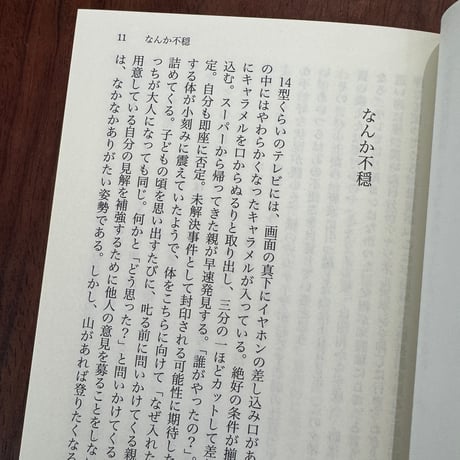 11 なんか不穏
なんか不穏
14型くらいのテレビには、画面の真下にイヤホンの差し込み口があ
の中にはやわらかくなったキャラメルが入っている。絶好の条件が揃
にキャラメルを口からぬるりと取り出し、三分の一ほどカットして差
込む。スーパーから帰ってきた親が早速発見する。「誰がやったの?」
定。自分も即座に否定。未解決事件として封印される可能性に期待した
する体が小刻みに震えていたようで、体をこちらに向けて「なぜ入れた
詰めてくる。子どもの頃を思い出すたびに、叱る前に問いかけてくる親
っちが大人になっても同じ。何かと「どう思った?」と問いかけてくる
用意している自分の見解を補強するために他人の意見を募ることをしな
は、なかなかありがたい姿勢である。しかし、山があれば登りたくなる